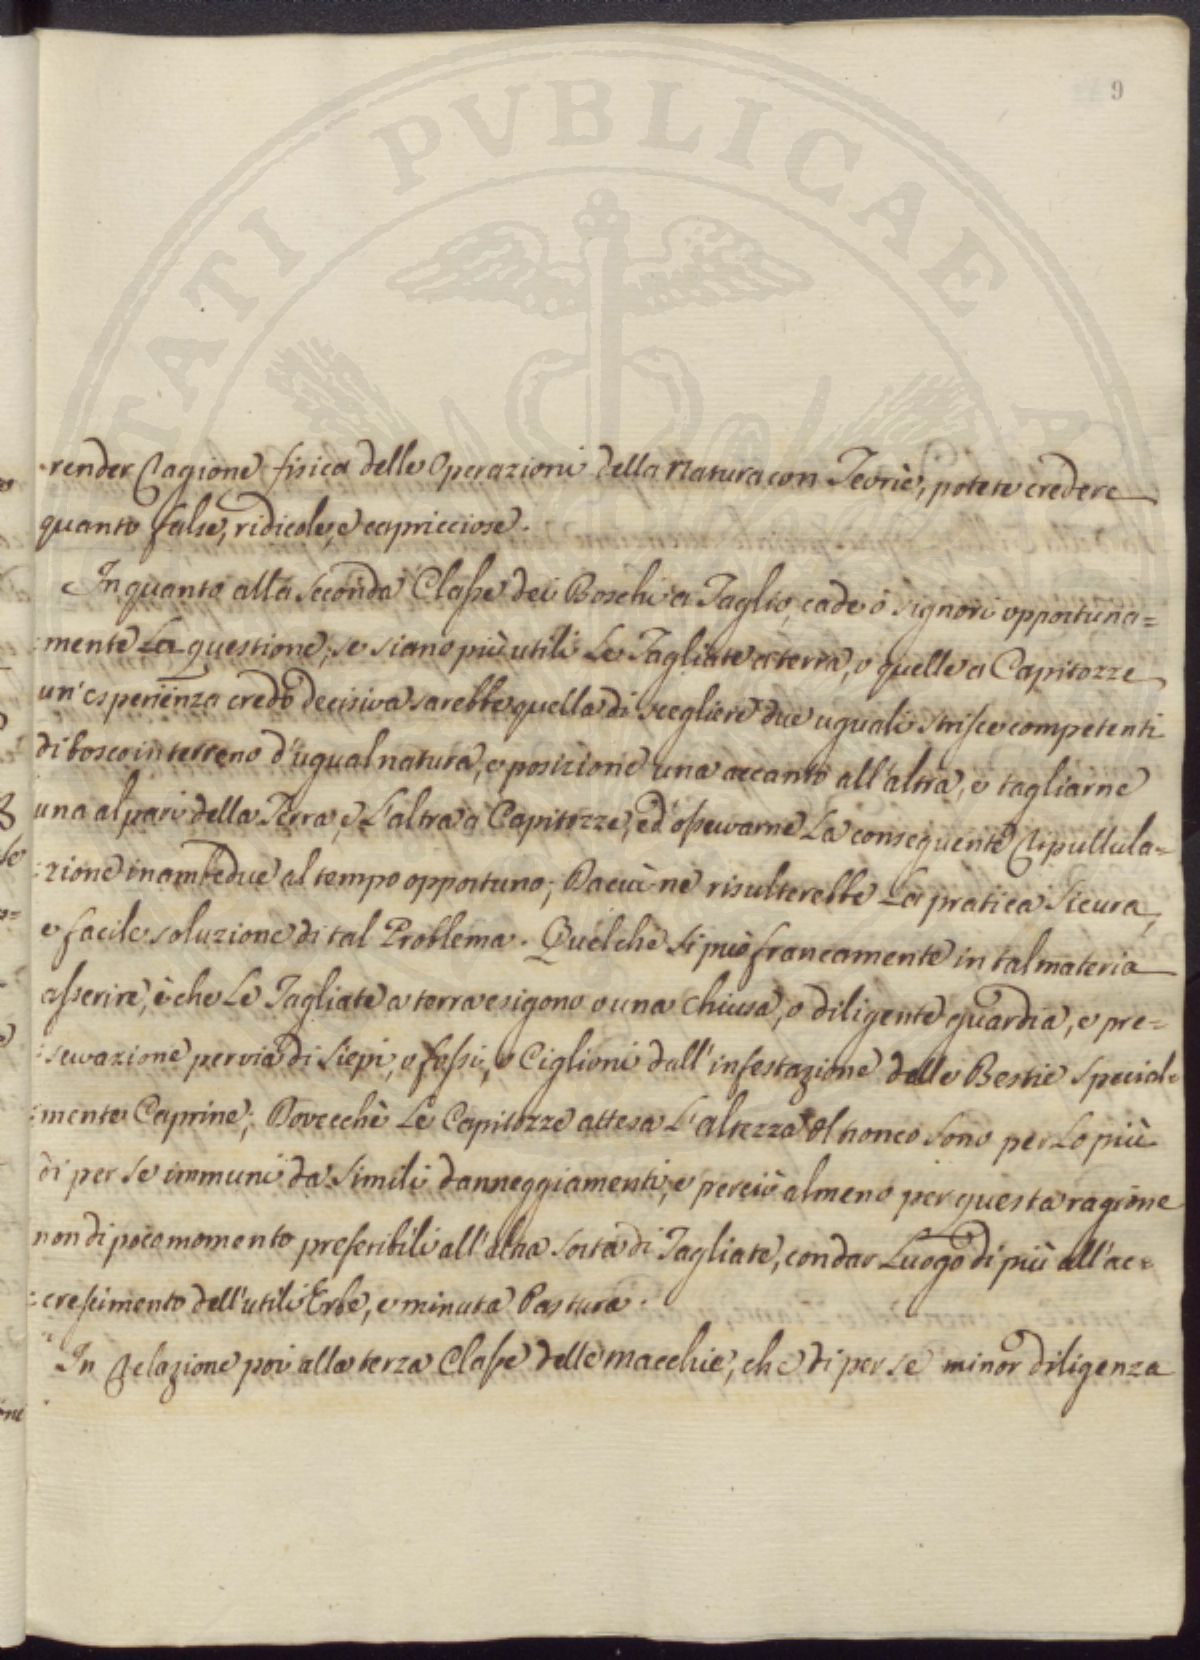 PVBLICAE
9
render Cagione fisica delle Operazioni della Natura con Teorie, potete credere
quanto false, ridicole, e capricciose.
In quanto alla seconda Classe dei Boschi a Taglio, cade ó signori opportuna=
:mente La questione, se siano più utili Le Tagliate a terra, o quelle a Capitozze
un'esperienza credo decisiva sarebbe quella di scegliere due uguali strisce competenti
di bosco in terreno d'ugual natura, e posizione una accanto all'altra, e tagliarne
una al pari della Terra, e L'altra a Capitozze, ed osservarne La conseguente Ripullula=
:zione in ambedue al tempo opportuno; Da cui ne risulterebbe La pratica sicura,
e facile soluzione di tal Problema. Quel che si può francamente in tal materia
asserire, è che Le Tagliate a terra esigono o una chiusa, o diligente guardia, e pre=
:servazione per via di Siepi, o fossi, o Ciglioni dall'infestazione delle Bestie special=
:mente Caprine; Dovecchè Le Capitozze attesa L'altezza del tronco sono per Lo più
di per se immuni da simili danneggiamenti, e perciò almeno per questa ragione
non di poco momento preferibili all'altra sorta di Tagliate, con dar Luogo di più all'ac=
:crescimento dell'utili Erbe, e minuta Pastura.
In Relazione poi alla terza Classe delle macchie, che di per se minor diligenza